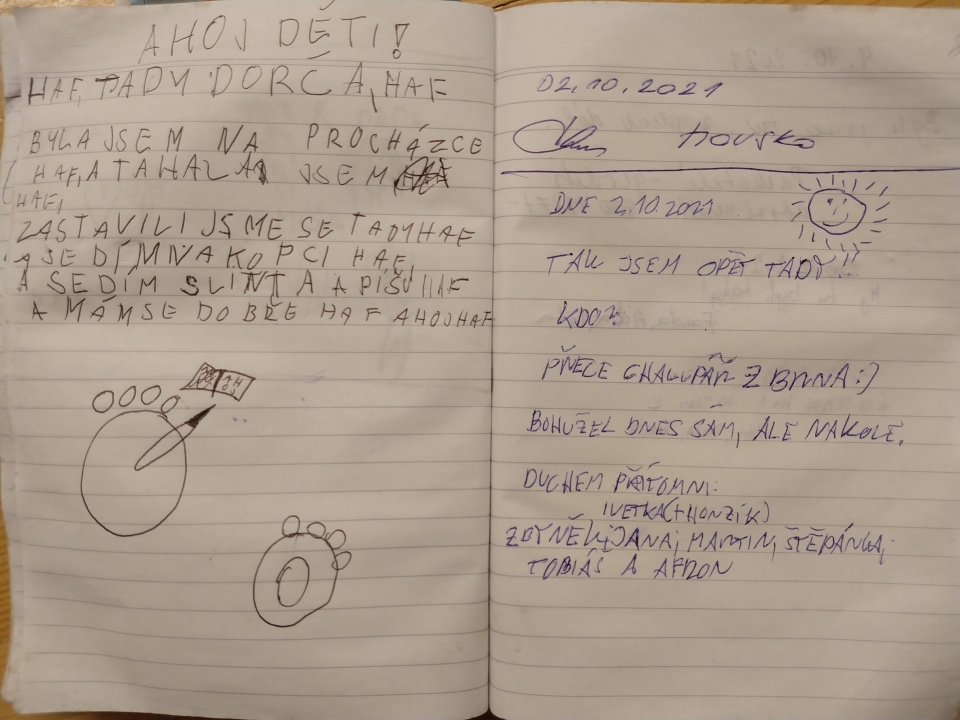 AHOJ DĚTI!
HAF, TADY DORČA, HAF
BYLA JSEM NA PROCHÁZCE
HAF, A TAHALA JSEM
HAF,
ZASTAVILI JSME SE TADY HAF
A SEDÍM NA KOPCI HAF,
A SEDÍM SLINTA A PÍŠU HAF
A MÁM SE DOBŘE HAF AHOJ HAF
02.10.2021
DNE 2.10.2021
TAK JSEM OPĚT TADY!!
KDO?
PŘECE CHALUPÁŘ Z BRNA :)
BOHUŽEL DNES SÁM, ALE NA KOLE.
DUCHEM PŘÍTOMNI:
IVETKA (+HONZÍK)
ZBYNĚK, JANA, MARTIN, ŠTĚPÁNKA,
TOBIÁŠ A